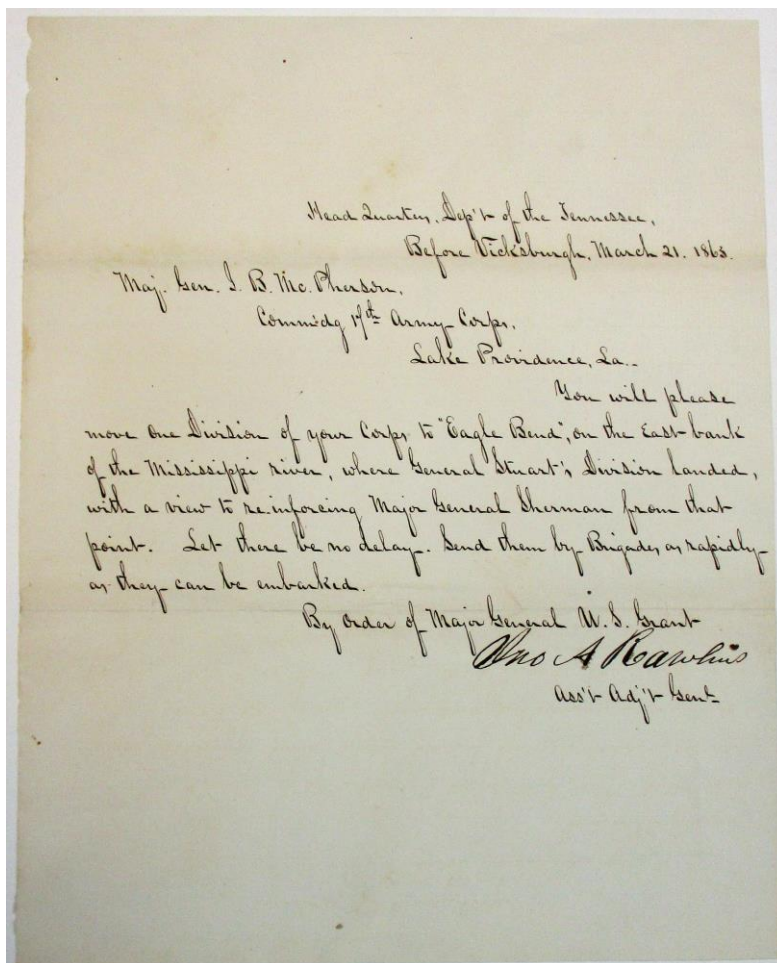 Head Quarters, Dep't of the Tennessee,
Before Vicksburgh, March 21. 1863.
Maj. Gen. J. B. Mc.Pherson,
Comm'dg 17th Army Corps,
Lake Providence, La..
You will please
move one Division of your Corps to "Eagle Bend", on the East bank
of the Mississippi river, where General Stuart's Division landed,
with a view to re.inforcing Major General Sherman from that
point. Let there be no delay. Send them by Brigades as rapidly
as they can be embarked.
By order of Major General U. S. Grant
Jno A Rawlins
Ass't Adj't Genl